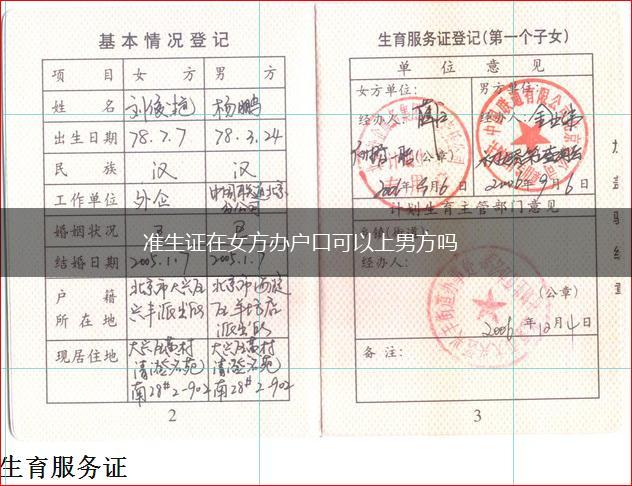 基本情况登记
项目 女方 男方
姓名 杨鹏
出生日期 78.7.7 78.3.24
民族 汉 汉
工作单位 外企 中国联通北京分公司
婚姻状况
结婚日期 2005.1.7 2005.1.7
户籍所在地 北京市大兴区兴丰派出所 北京市海淀区羊坊店派出所
现居住地 大兴区黄村清澄名苑南28#2-902 大兴区黄村清澄名苑南28#2-902
2
生育服务证登记(第一个子女)
单位意见
女方单位: 男方单位:
经办人: 经办人:
(公章)
2006年9月6日 2006年9月6日
计划生育主管部门意见
乡镇(街道):
经办人:
(公章)
2006年12月4日
备注:
3
准生证在女方办户口可以上男方吗
生育服务证